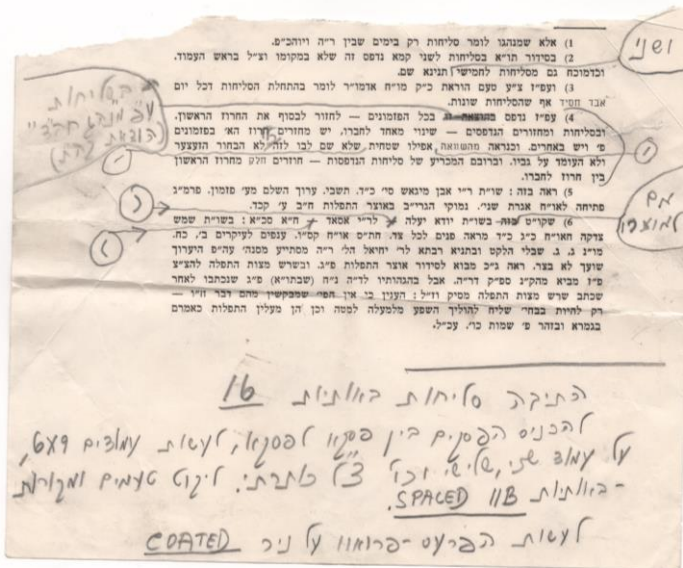 1) אלא שמנהגנו לומר סליחות רק בימים שבין ר״ה ויוהכ״פ.
2) בסידור תו״א בסליחות לשני קמא נדפס זה שלא במקומו וצ״ל בראש העמוד.
וכדמוכח גם מסליחות לחמישי תנינא שם.
3) ועפ״ז צ״ע טעם הוראת כ״ק מו״ח אדמו״ר לומר בהתחלת הסליחות דכל יום
אבד חסיד אף שהסליחות שונות.
4) עפ״ז נדפס בכל הפזמונים — לחזור לבסוף את החרוז הראשון.
ובסליחות ומחזורים הנדפסים — שינוי מאחד לחברו, יש מחזרים חרוז הא׳ בפזמונים
פ׳ ויש באחרים. וכנראה מהשוואה אפילו שטחית, שלא שם לבו לזה לא הבחור הזעצער
ולא העומד על גביו. וברובם המכריע של סליחות הנדפסות — חוזרים חלק מחרוז הראשון
בין חרוז לחברו.
5) ראה בזה: שו״ת ר״י אבן מיגאש סי׳ כ״ד. תשבי. ערוך השלם מע׳ פזמון. פרמ״ג
פתיחה לאו״ח אגרת שני׳. נמוקי הגרי״ב באוצר התפלות ח״ב ע׳ קכד.
6) שקו״ט בזה בשו״ת יודא יעלה לר״י אסאד ח״א סכ״א: בשו״ת שמש
צדקה חאו״ח כ״ג כ״ד מראה פנים לכל צד. חת״ס או״ח קס״ו. ענפים לעיקרים ב׳, כח.
מו״נ ג, ג. שבלי הלקט ובתניא רבתא לר׳ יחיאל הל׳ ר״ה מסתייע מסנה׳ עה״פ היערוך
שועך לא בצר. ראה ג״כ מבוא לסידור אוצר התפלות פ״ג. ובשרש מצות התפלה להצ״צ
פ״ז מביא מהק״נ ספ״ק דר״ה. אבל בהגהותיו לד״ה נ״ח (שבתו״א) פ״ג שנכתבו לאחר
שכתב שרש מצות התפלה מסיק וז״ל: הענין כי אין חפי׳ שמבקשין מהם דבר זו״ו —
רק להיות בבחי׳ שליח להוליך השפע מלמעלה למטה וכן הן מעלין התפלות כאמרם
בגמרא ובזהר פ׳ שמות כו׳. עכ״ל.
ושני
הסליחות
עפ״י מנהג חב״ד
(הוצאת קה״ת)
הכתיבה סליחות באותיות 16
להכניס הפסקים בין פסקא לפסקא, לעשות עמודים 9x6,
על עמוד שני, שלישי וכו׳ צ״ל כותרתי. ליקוט טעמים ומקורות
- באותיות 11B SPACED.
לעשות הפרעס-פרואוו על ניר COATED